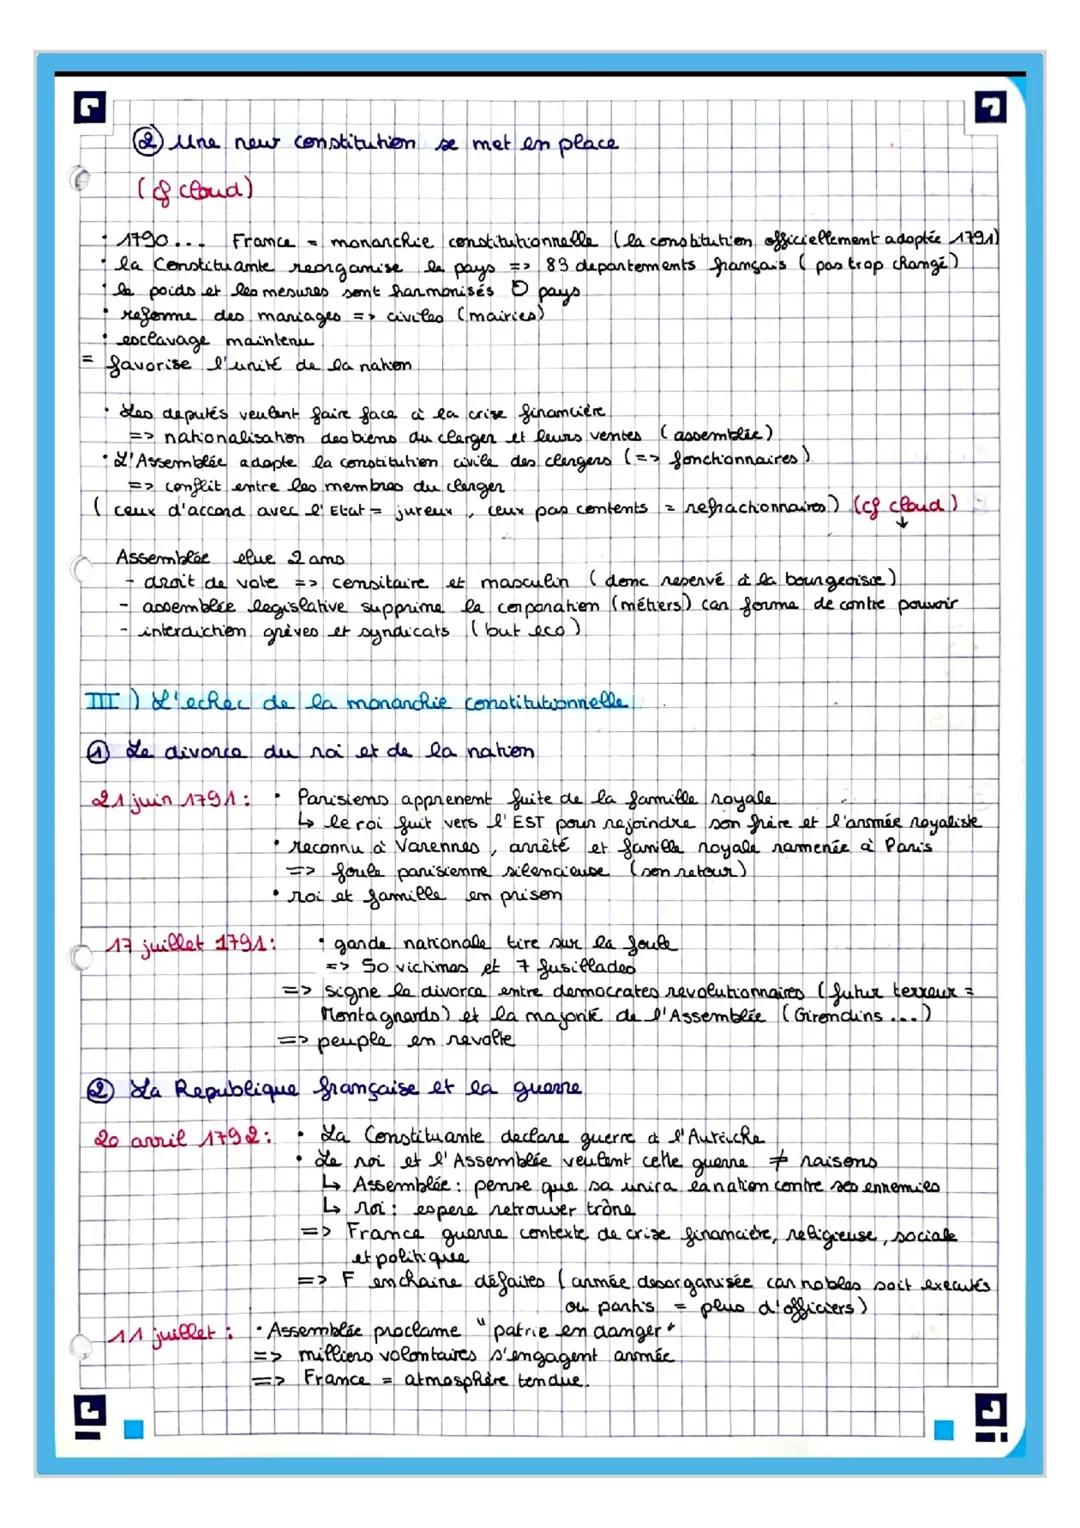 ② Une new constitution se met en place
(cf cloud)
· 1790... France = monarchie constitutionnelle (la constitution officiellement adoptée 1791)
· la Constituante reorganise le pays => 83 departements français (pas trop changé)
· le poids et les mesures sont harmonisés pays
· reforme des mariages => civiles (mairies)
· esclavage maintenu
= favorise l'unité de la nation
· Les deputés veulent faire face à la crise financière
=> nationalisation des biens du clerger et leurs ventes (assemblée)
· L'Assemblée adopte la constitution civile des clergers (=> fonctionnaires)
=> conflit entre les membres du clerger
(ceux d'accord avec l'Etat = jureux, ceux pas contents = refractionnaires) (cf cloud)
↓
Assemblée elue 2 ans
- droit de vote => censitaire et masculin (donc reservé à la bourgeoisie)
- assemblée legislative supprime la corporation (métiers) car forme de contre pouvoir
- interdiction grèves et syndicats (but eco)
III) L'echec de la monarchie constitutionnelle
① Le divorce du roi et de la nation
21 juin 1791: · Parisiens apprenent fuite de la famille royale
↳ le roi fuit vers l'EST pour rejoindre son frère et l'armée royaliste
· reconnu à Varennes, arrêté et famille royale ramenée à Paris
=> foule parisienne silencieuse (son retour)
· roi et famille en prison
17 juillet 1791: · garde nationale tire sur la foule
=> 50 victimes et 7 fusillades
=> signe le divorce entre democrates revolutionnaires (futur terreur =
Montagnards) et la majorité de l'Assemblée (Girondins...)
=> peuple en revolte
② La Republique française et la guerre
20 avril 1792: · La Constituante declare guerre à l'Autriche
· Le roi et l'Assemblée veulent cette guerre ≠ raisons
↳ Assemblée: pense que sa unira la nation contre ses ennemies
↳ roi: espere retrouver trône
=> France guerre contexte de crise financière, religieuse, sociale
et politique
=> F enchaine défaites (armée desorganisée car nobles soit executés
ou partis = plus d'officiers)
11 juillet: · Assemblée proclame "patrie en danger"
=> milliers volontaires s'engagent armée
=> France = atmosphère tendue.